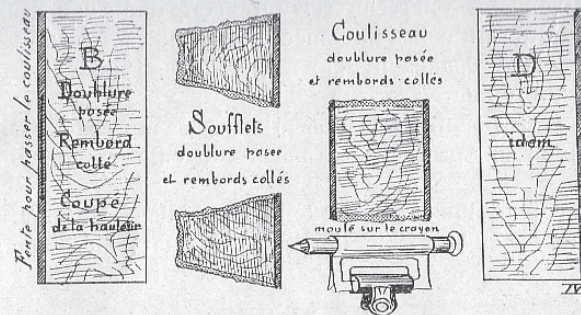 Fente pour passer le coulisseau
B
Doublure
posée
Rembord
collé
Coupe
de la hauteur
Soufflets
doublure posee
et rembords collés
Coulisseau
doublure posée
et rembords collés
moulé sur le crayon
D
idem
IV